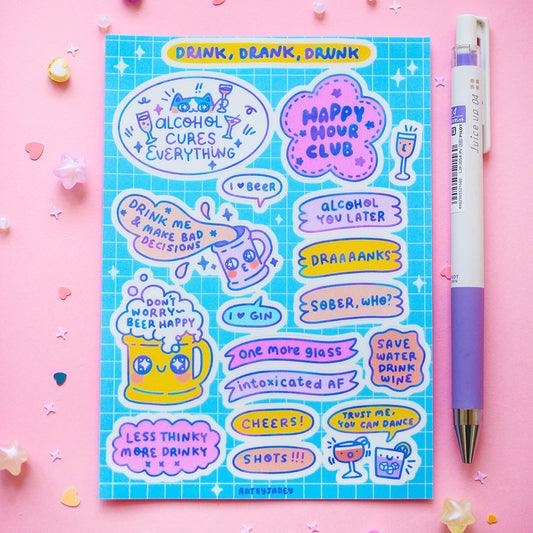 DRINK, DRANK, DRUNK
ALCOHOL
CURES
EVERYTHING
HAPPY
HOUR
CLUB
I ♥ BEER
DRINK ME
& MAKE BAD
DECISIONS
ALCOHOL
YOU LATER
DRAAAANKS
SOBER, WHO?
DON'T
WORRY~
BEER HAPPY
I ♥ GIN
one more glass
intoxicated AF
SAVE
WATER
DRINK
WINE
CHEERS!
SHOTS!!!
TRUST ME,
YOU CAN DANCE
LESS THINKY
MORE DRINKY
x x x
ARTSYJADEY
Juice up 04